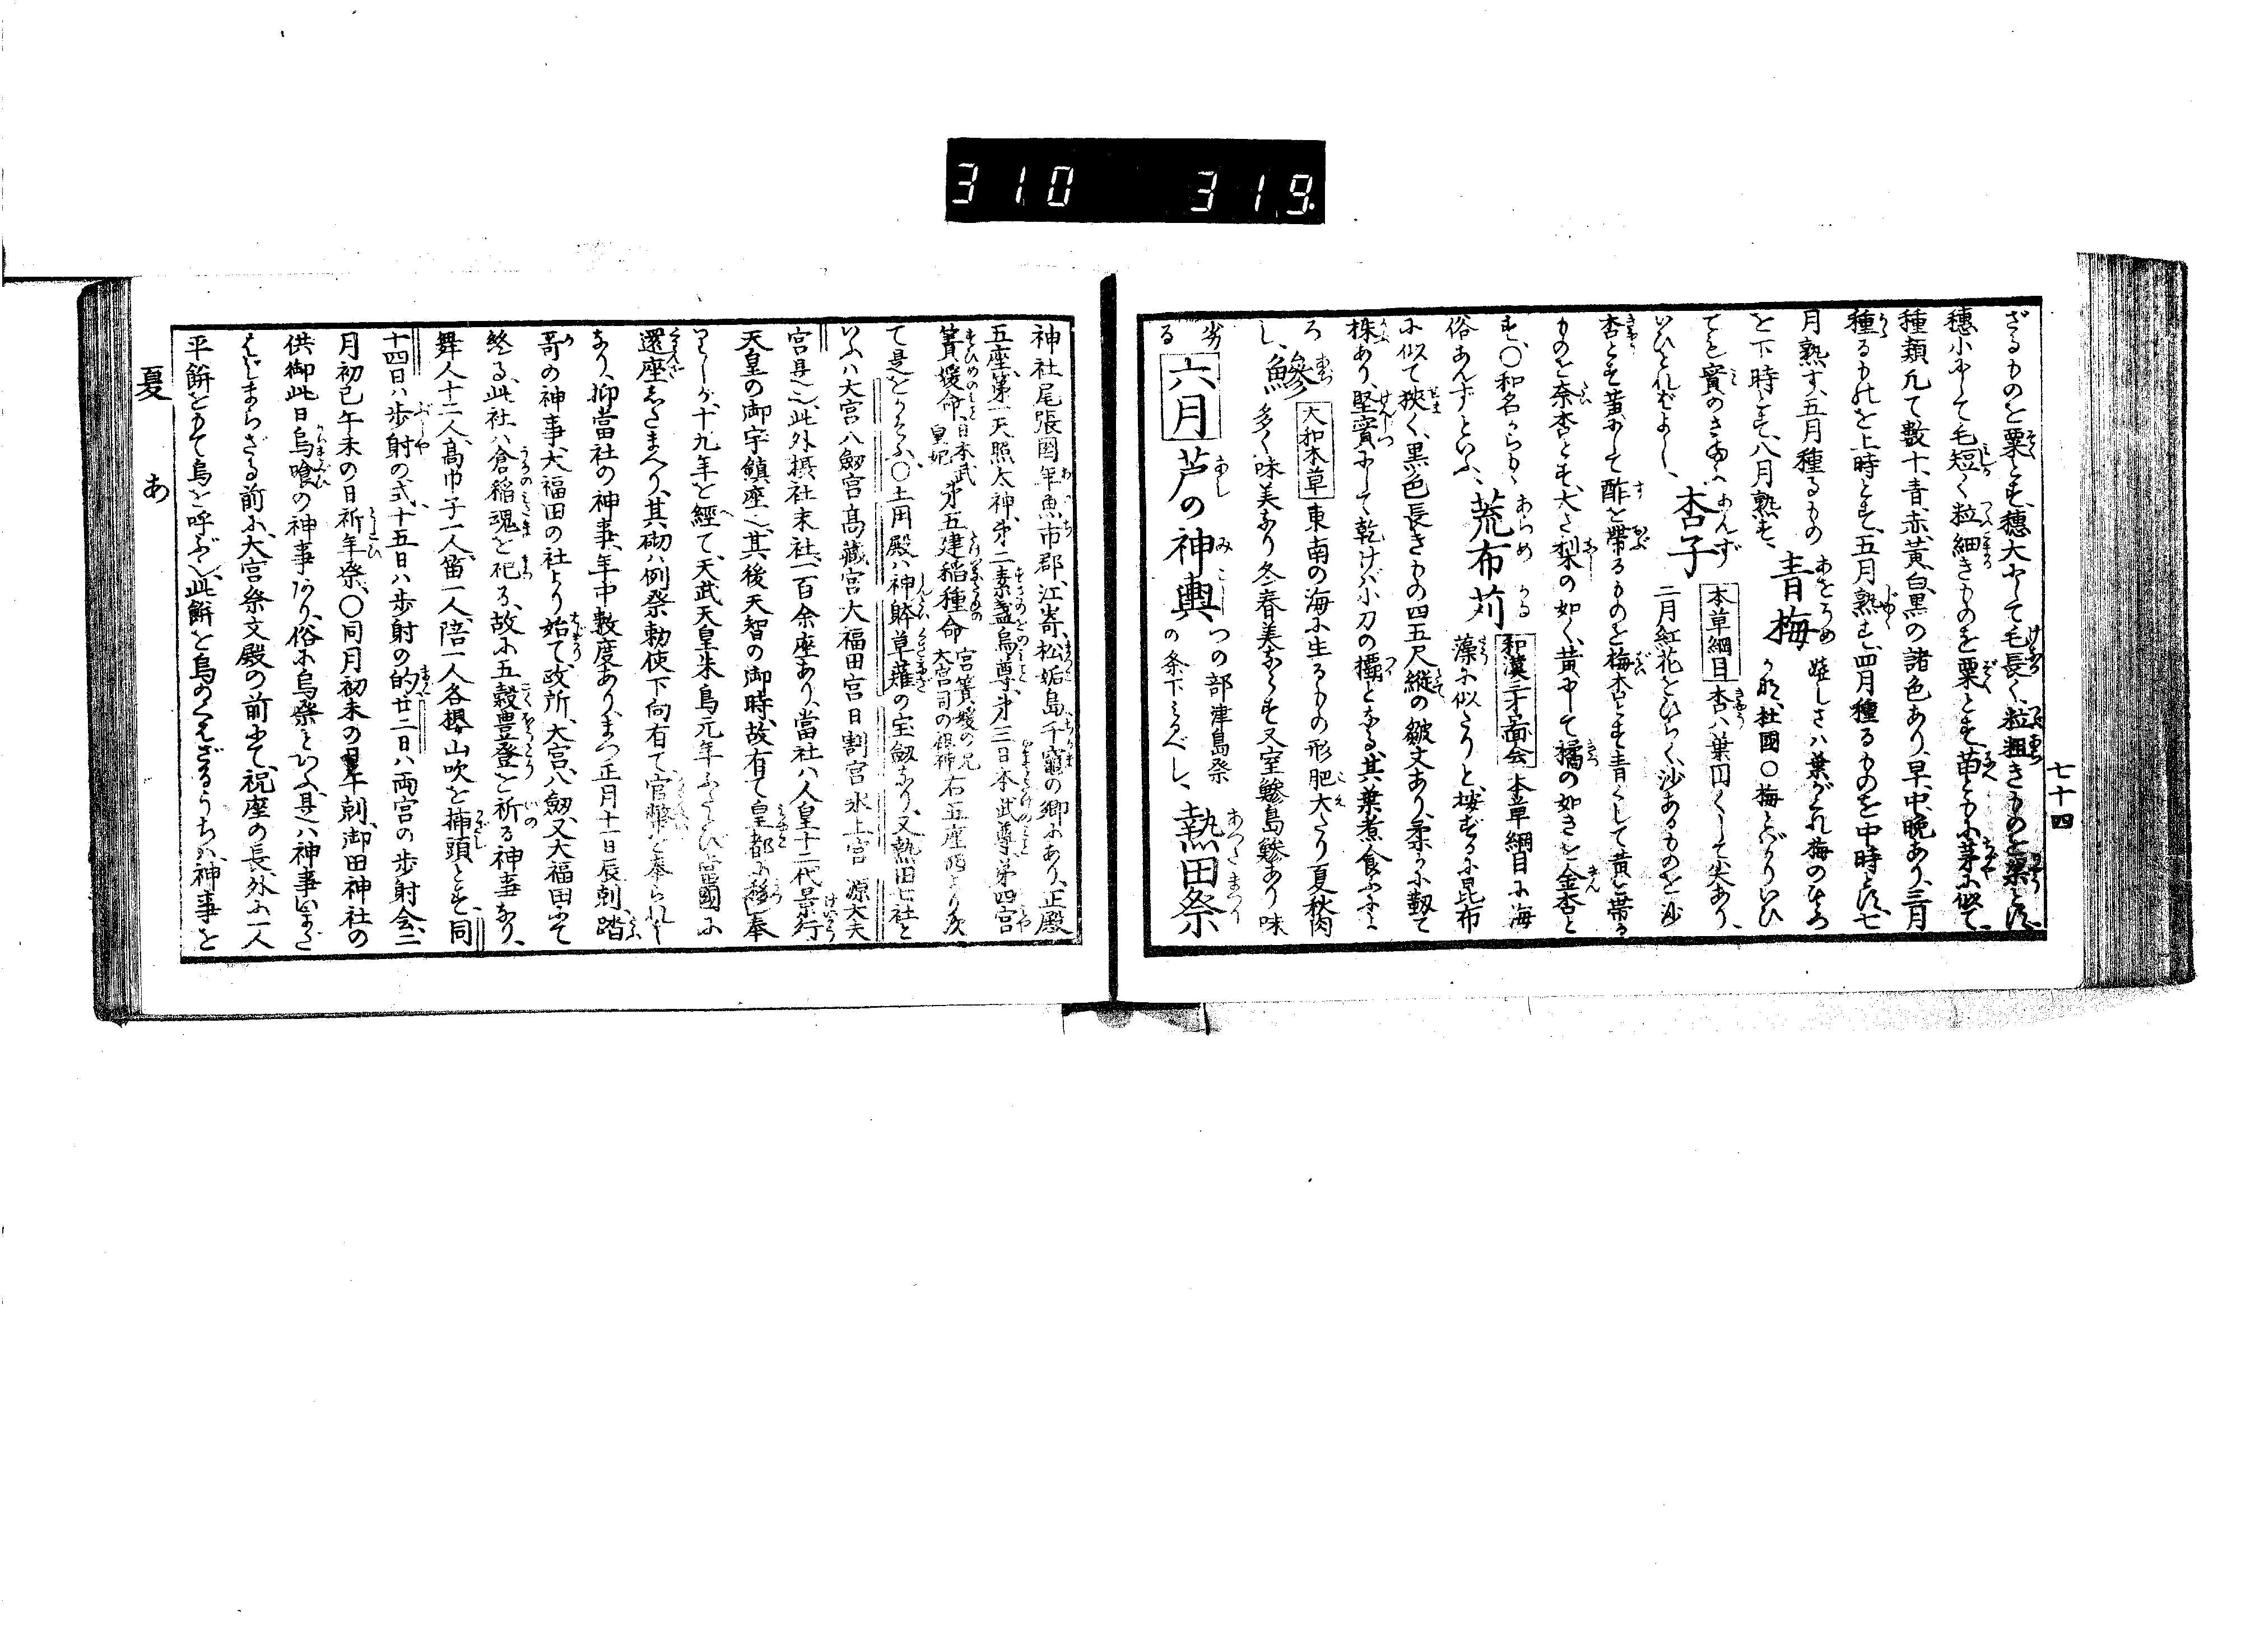 310 319
七十四
ざるものを粟とす、穂大にして毛長く粒粗きものを梁とす、
穂小にして毛短く粒細きものを粟とす、苗ともに茅に似て、
種類凡て数十、青、赤、黄、白、黒の諸色あり、早、中、晩あり、三月
種るものを上時とす、五月熟す、四月種るものを中時とす、七
月熟す、五月種るもの
を下時とす、八月熟す、
青梅 あをうめ
葉がくれ梅の
杜國○梅とばかりいひ
てを實のさまへ
いひとればよし、
杏子 あんず
本草綱目 杏ハ葉円くして尖あり、
二月紅花をひらく、沙あるものを沙
杏とす、黄にして酢を帯るものを梅杏とす、青くして黄を帯る
ものを奈杏とす、大さ梨の如く、黄にして橘の如きを金杏と
す、○和名からもゝ
俗あんずといふ、
荒布苅 あらめ かる
和漢三才圖会 本草綱目に海
藻に似たりと、按ずるに昆布
に似て狭く、黒色長きもの四五尺縦の皺文あり、柔かに靱て
株あり、堅實にして乾けば小刀の欛となる、其葉煮食ふに
ろし、
鰺 あぢ
大和本草 東南の海に生るもの形肥大なり夏秋肉
多く味美なり冬春美ならず又室鰺島鰺あり味
劣る
六月
芦の神輿 あし みこし
つの部津島祭
の条下みるべし、
熱田祭 あつたまつり
神社尾張國年魚市郡、江嵜、松姤島、千竈の郷にあり、正殿
五座、第一天照太神、第二素盞烏尊、第三日本武尊、第四宮
簀媛命、日本武皇妃 第五建稲種命 宮簀媛の兄大宮司の祖神 右五座
て是を○土用殿ハ神躰草薙の宝剱なり、又熱田七社と
いふハ大宮八劔宮高蔵宮大福田宮日割宮氷上宮源大夫
宮是也、此外摂社末社、一百余座あり、當社ハ人皇十二代景行
天皇の御宇鎮座也、其後天智の御時、故有て皇都に移し奉
りしが、十九年を經て、天武天皇朱鳥元年ふたゝび當國に
還座したまへり、其砌ハ例祭勅使下向有て、官幣を奉られし
なり、抑當社の神事、年中数度あり、まづ正月十一日辰剋、踏
哥の神事、大福田の社より始て、政所、大宮、八劔、又大福田にて
終る、此社ハ倉稲魂を祀る、故に五穀豊登を祈る神事なり、
舞人十二人、高巾子一人、笛一人、陪一人各櫻山吹を挿頭とす、同
十四日ハ歩射の式、十五日ハ歩射の的、廿二日ハ両宮の歩射会、二
月初已午未の日祈年祭、○同月初未の日午剋、御田神社の
供御此日烏喰の神事あり、俗に烏祭といふ、是ハ神事いまだ
はじまらざる前に、大宮祭文殿の前にて、祝座の長外に一人
平餅をもて烏を呼ぶ也、此餅を烏のくはざるうちハ神事を
夏 あ